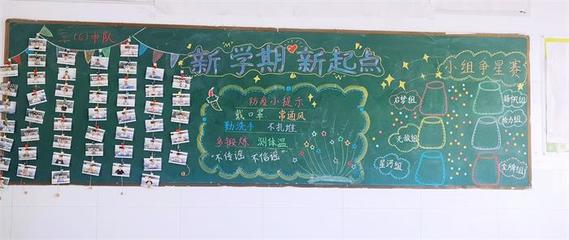 三(6)中队
新学期 新起点
小组争星赛
防疫小提示
戴口罩 常通风
勤洗手 不扎堆
多锻炼 测体温
不传谣 不信谣
启梦组
无敌组
给力组
星河组
金牌组